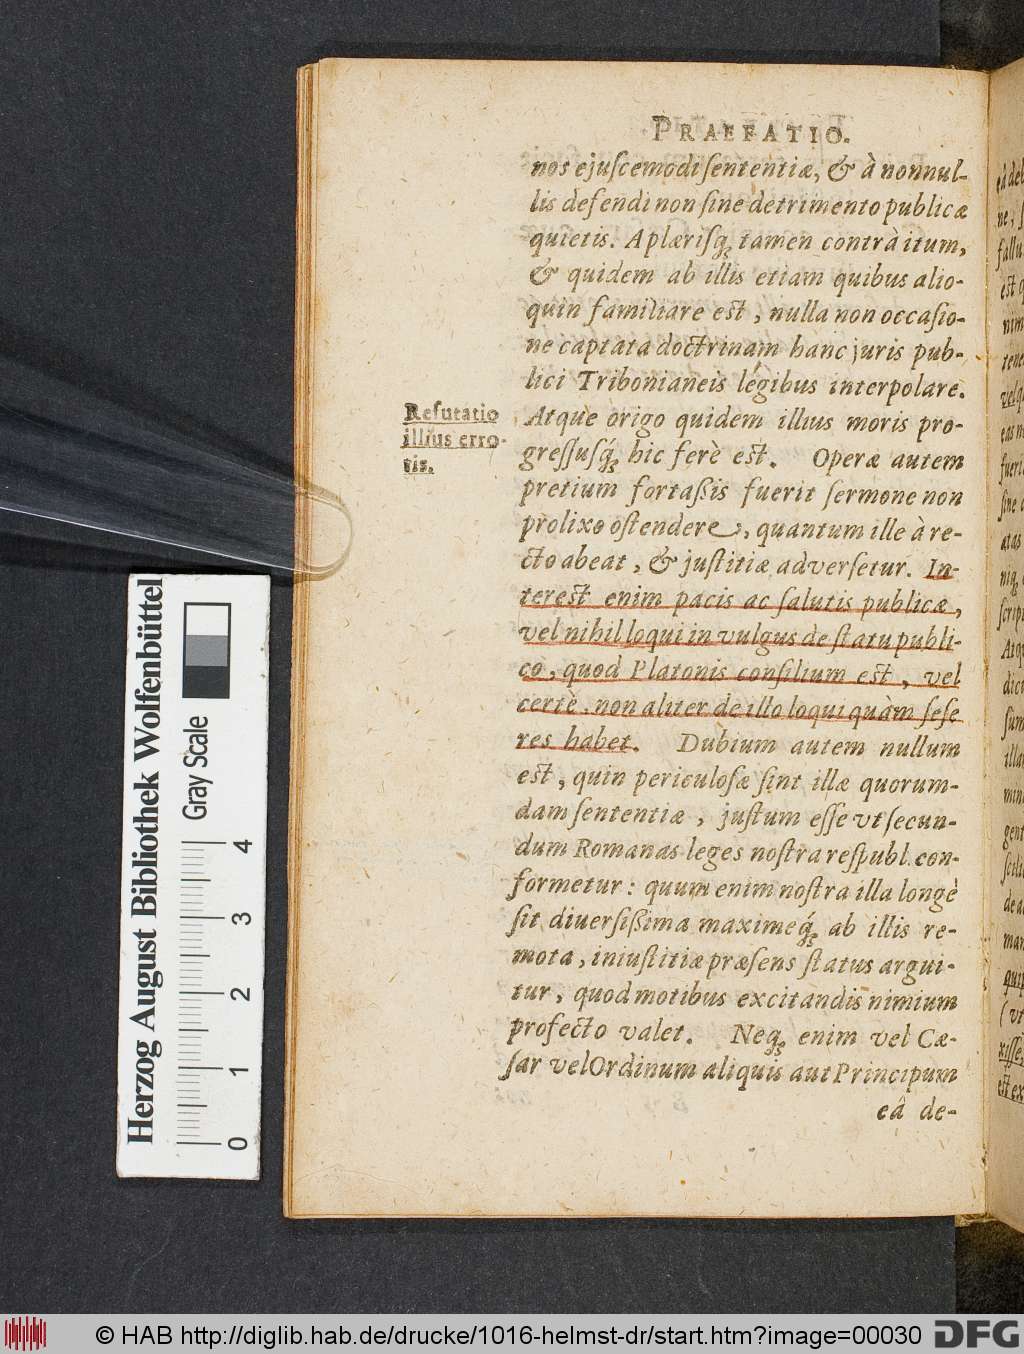 PRAEFATIO.
nos ejuſcemodi ſententiæ, & à nonnul-
lis defendi non ſine detrimento publicæ
quietis. A plæriſq; tamen contrà itum,
& quidem ab illis etiam quibus alio-
quin familiare est, nulla non occaſio-
ne captata doctrinam hanc juris pub-
lici Tribonianeis légibus interpolare.
Refutatio
illius erro-
ris.
Atque origo quidem illius moris pro-
greſſuſq́; hic ferè est. Operæ autem
pretium fortaßis fuerit ſermone non
prolixo oſtendere, quantum ille à re-
cto abeat, & juſtitiæ adverſetur. In-
terest enim pacis ac ſalutis publicæ,
vel nihil loqui in vulgus de ſtatu publi-
co, quod Platonis conſilium est, vel
certè non aliter de illo loqui quàm ſeſe
res habet. Dubium autem nullum
est, quin periculoſæ ſint illæ quorum-
dam ſententiæ, juſtum eſſe vt ſecun-
dum Romanas leges noſtra reſpubl. con-
formetur: quum enim noſtra illa longè
ſit diuerſißima maximeq́; ab illis re-
mota, iniuſtitiæ præſens ſtatus argui-
tur, quod motibus excitandis nimium
profecto valet. Neq; enim vel Cæ-
ſar vel Ordinum aliquis aut Principum
eâ de-
Herzog August Bibliothek Wolfenbüttel
Gray Scale
0 1 2 3 4
© HAB http://diglib.hab.de/drucke/1016-helmst-dr/start.htm?image=00030
DFG